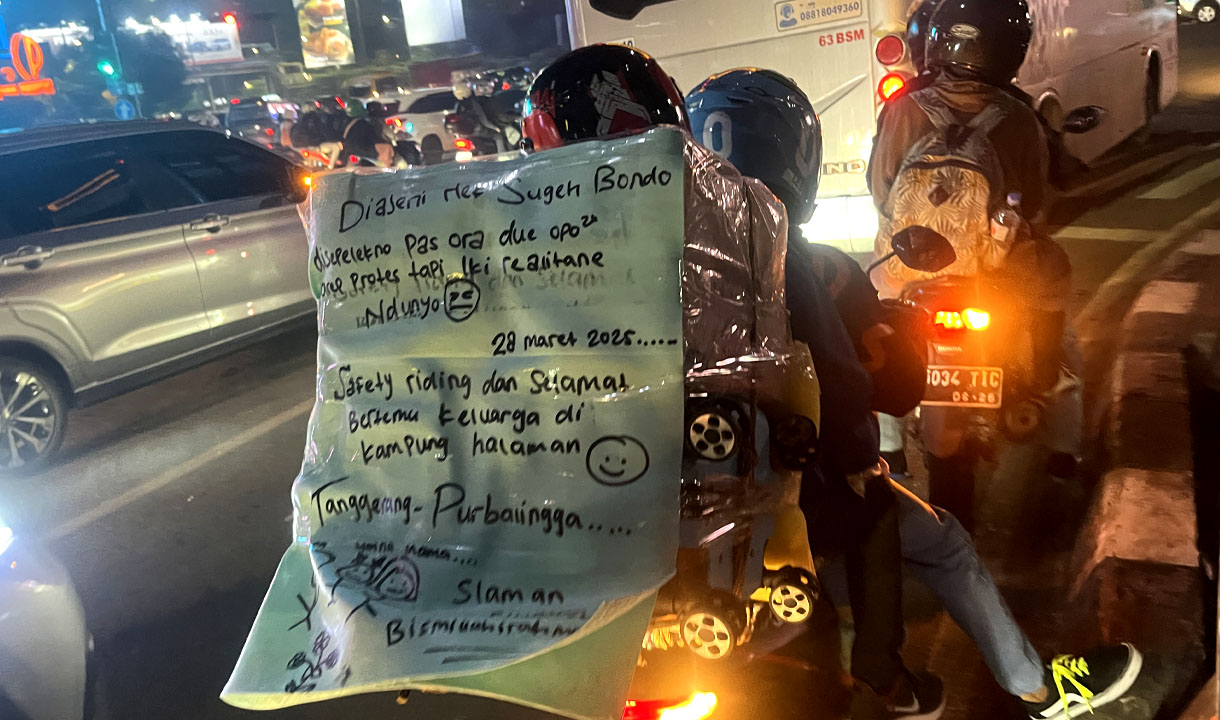 08818049360
63 BSM
Diajeni nek Sugeh Bondo
disepelekno pas ora due opo²
protes tapi iki realitane
Ndunyo
28 maret 2025......
Safety riding dan Selamat
Bertemu keluarga di
kampung halaman
Tanggerang- Purbalingga.....
nama....
Slaman
034 TIC
06-26